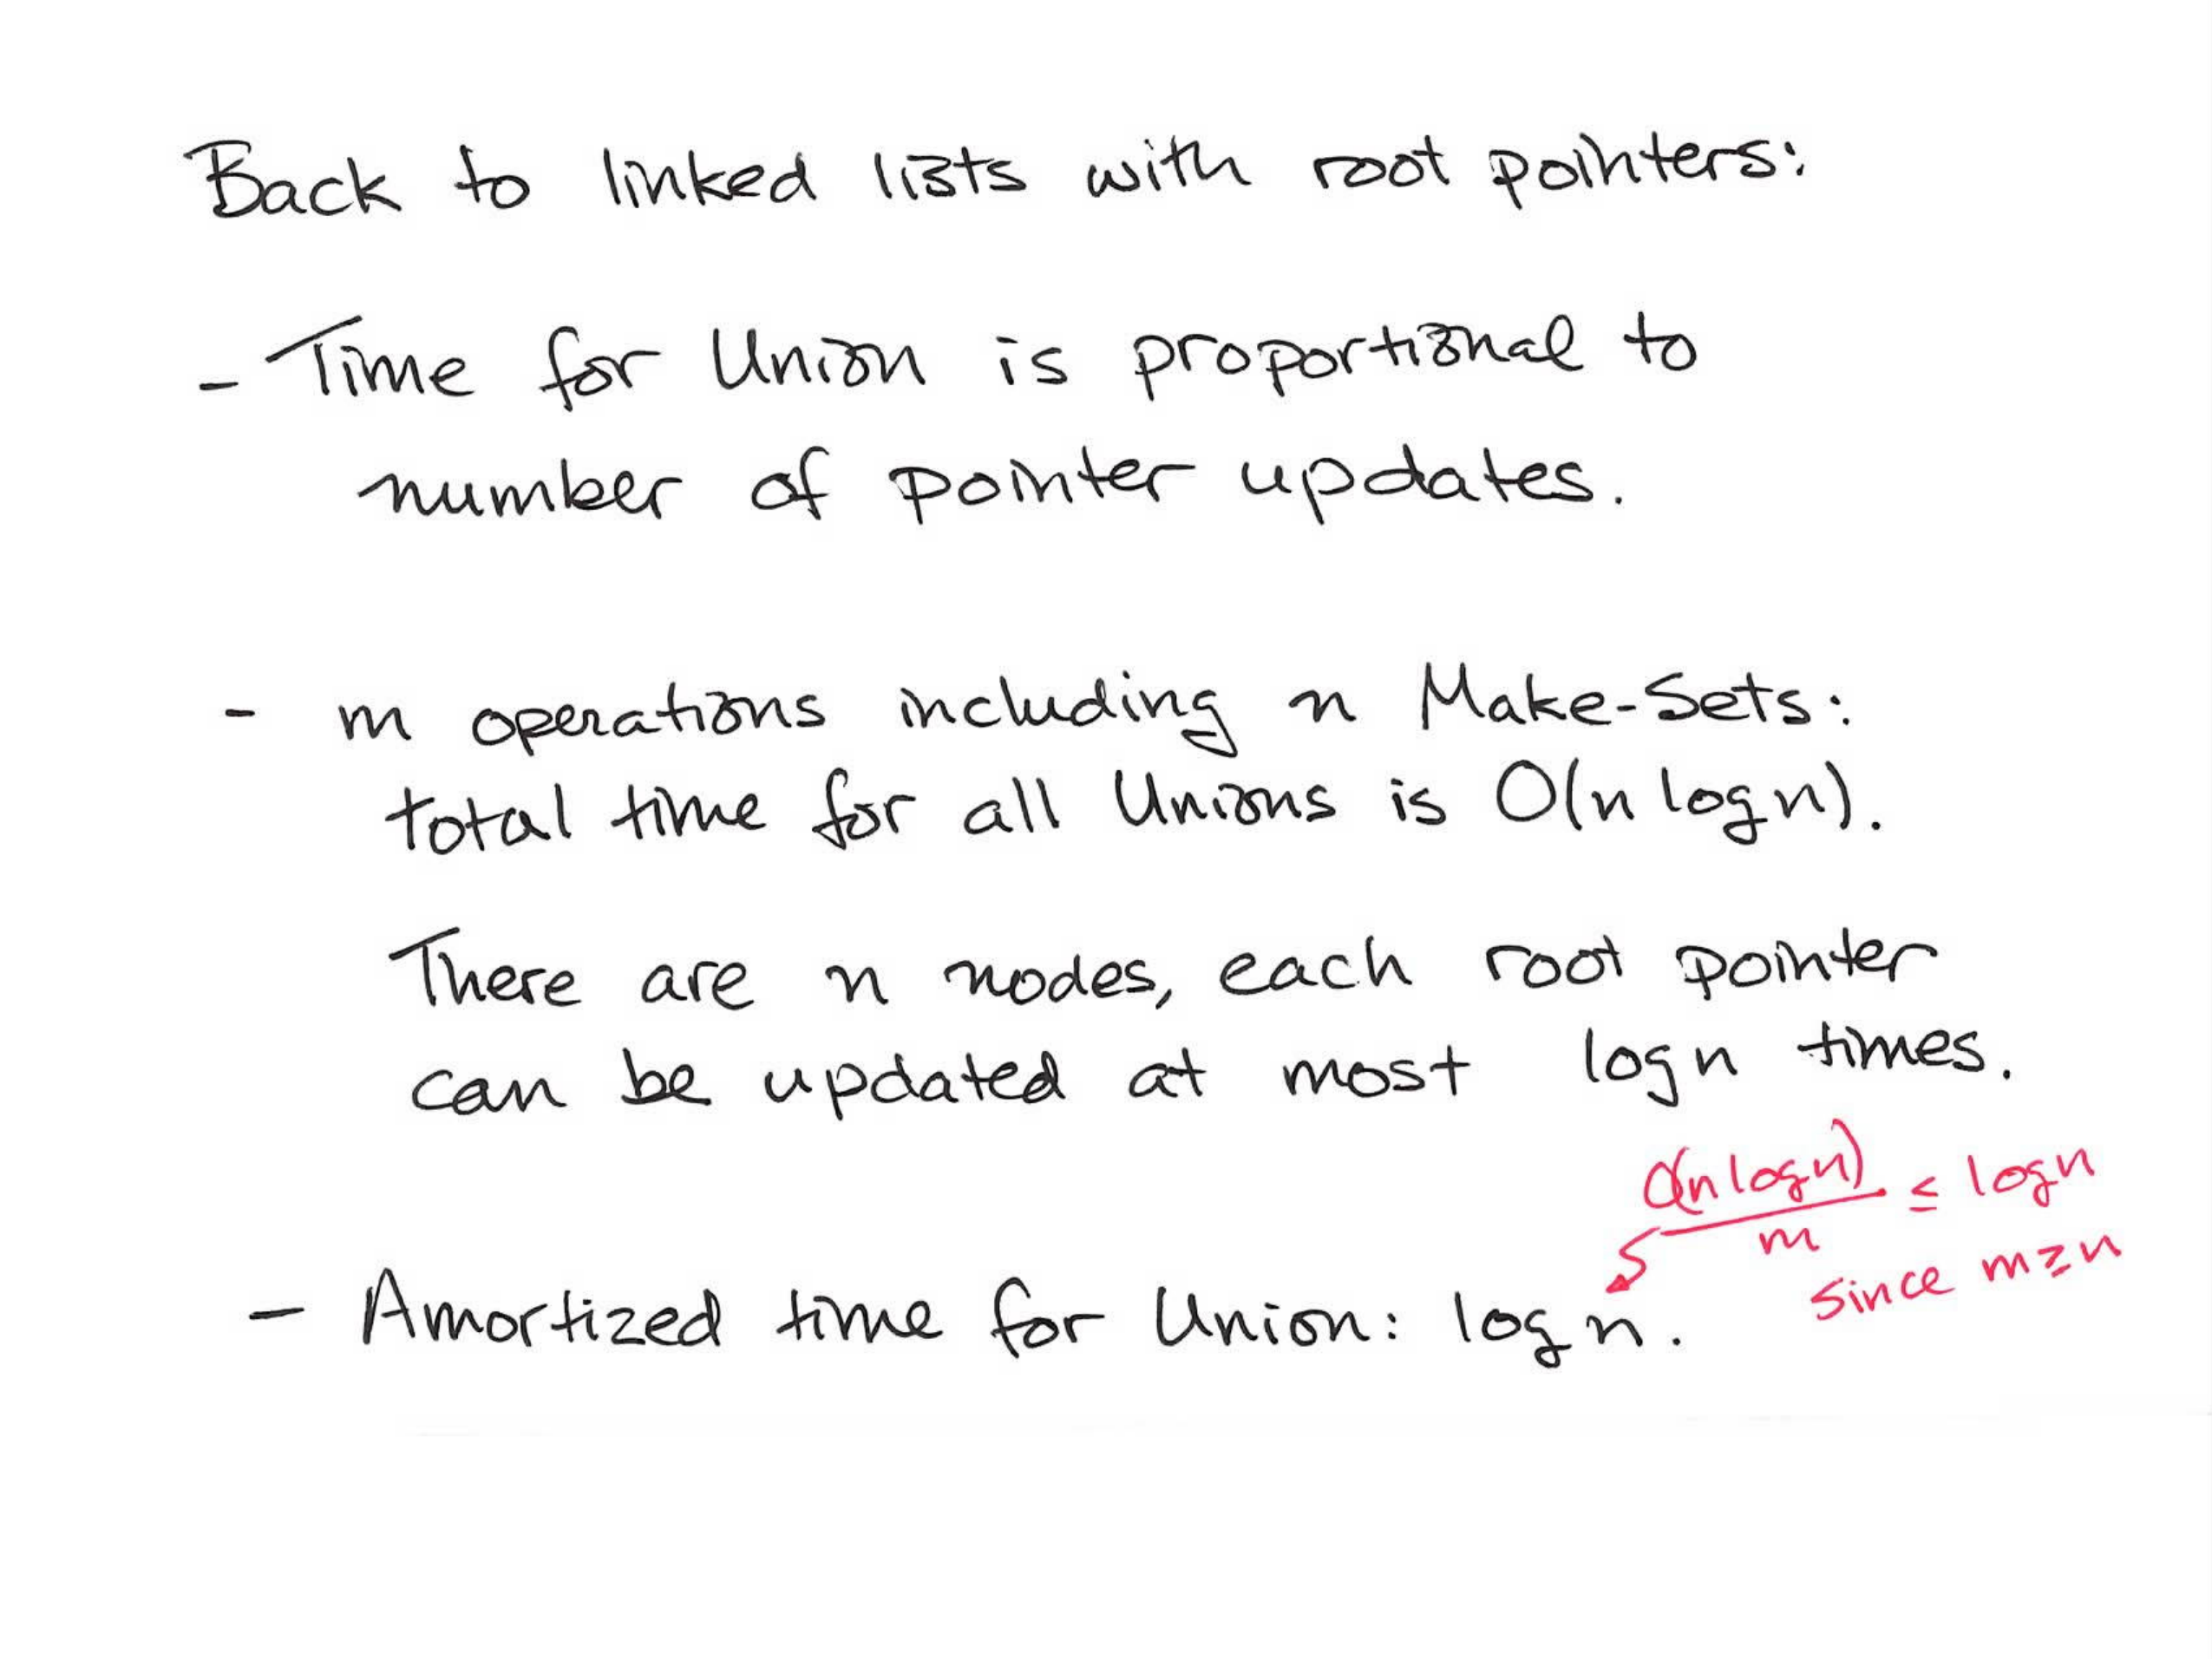 Back to linked lists with root pointers:
- Time for Union is proportional to
number of pointer updates.
- m operations including n Make-Sets:
total time for all Unions is O(n log n).
There are n nodes, each root pointer
can be updated at most log n times.
O(n log n) / m ≤ log n
since m ≥ n
- Amortized time for Union: log n.